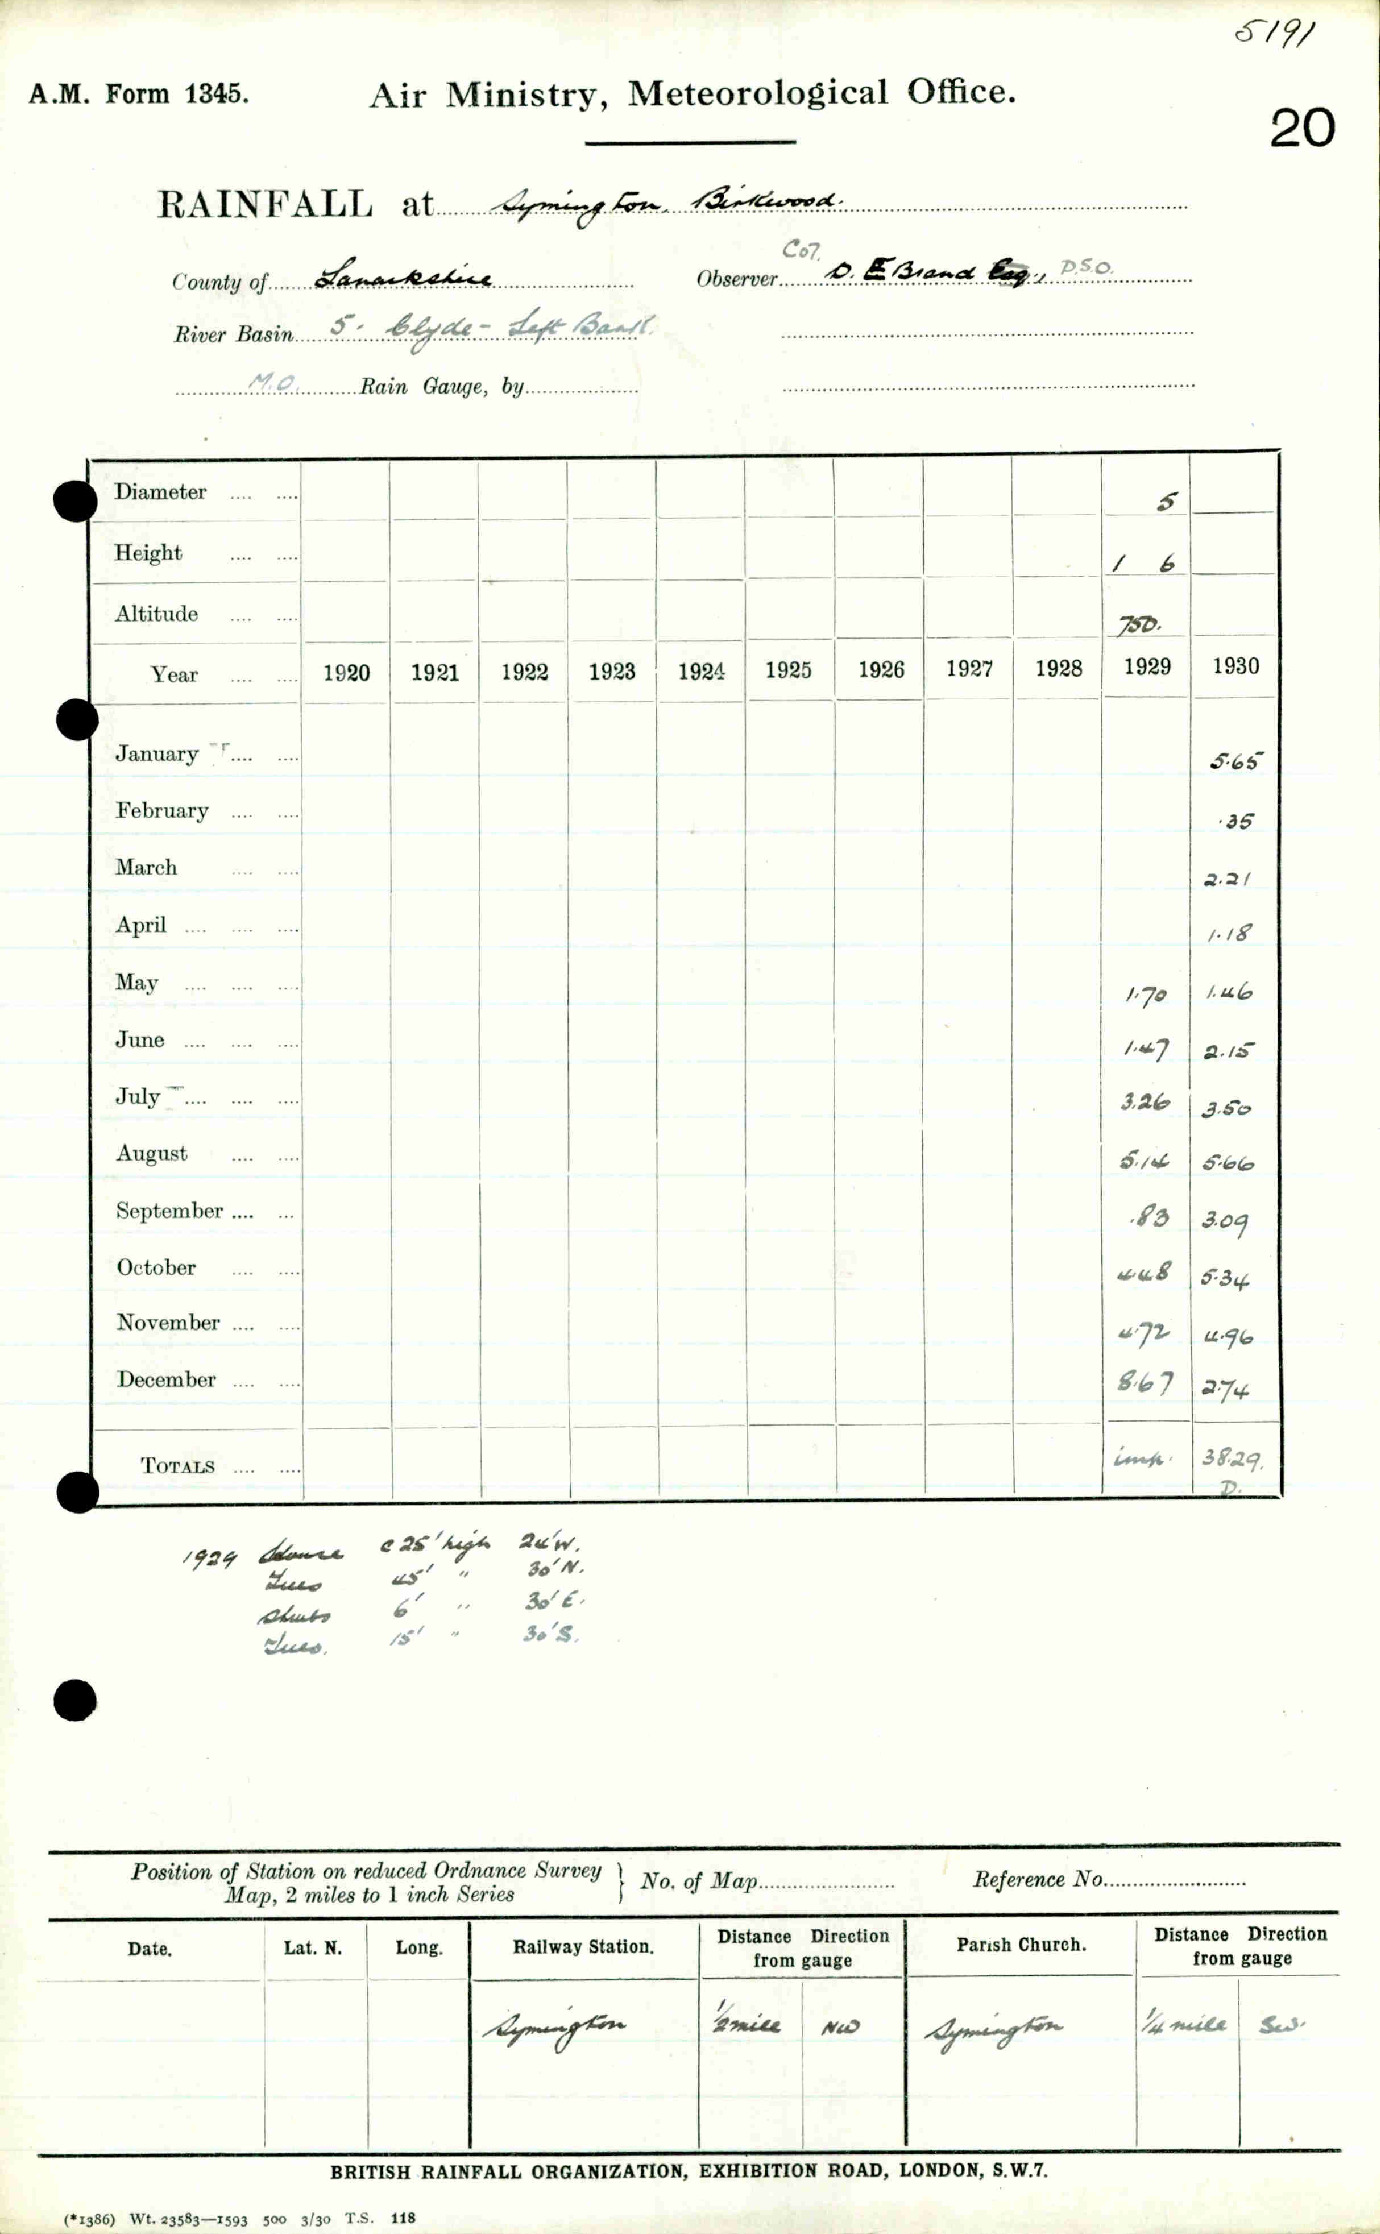 5191
A.M. Form 1345. Air Ministry, Meteorological Office.
20
RAINFALL at Symington, Birkwood.
Col.
County of Lanarkshire Observer D. E Brand Esq., D.S.O.
River Basin 5. Clyde - Left Bank.
M.O. Rain Gauge, by
Diameter .... .... 5
Height .... .... 1 6
Altitude .... .... 750.
Year .... .... 1920 1921 1922 1923 1924 1925 1926 1927 1928 1929 1930
January .... .... 5.65
February .... .... .35
March .... .... 2.21
April .... .... .... 1.18
May .... .... .... 1.70 1.46
June .... .... .... 1.47 2.15
July .... .... .... 3.26 3.50
August .... .... 5.14 5.66
September .... ... .83 3.09
October .... .... 4.48 5.34
November .... .... 4.72 4.96
December .... .... 8.67 2.74
TOTALS .... .... 38.29.
D.
1929 House c 25' high 24' W.
Trees 45' " 30' N.
Shrubs 6' " 30' E.
Trees. 15' " 30' S.
Position of Station on reduced Ordnance Survey
Map, 2 miles to 1 inch Series } No. of Map Reference No.
Date. Lat. N. Long. Railway Station. Distance Direction from gauge Parish Church. Distance Direction from gauge
Symington 1/2 mile NW Symington 1/4 mile SW.
BRITISH RAINFALL ORGANIZATION, EXHIBITION ROAD, LONDON, S.W.7.
(*1386) Wt. 23583—1593 500 3/30 T.S. 118